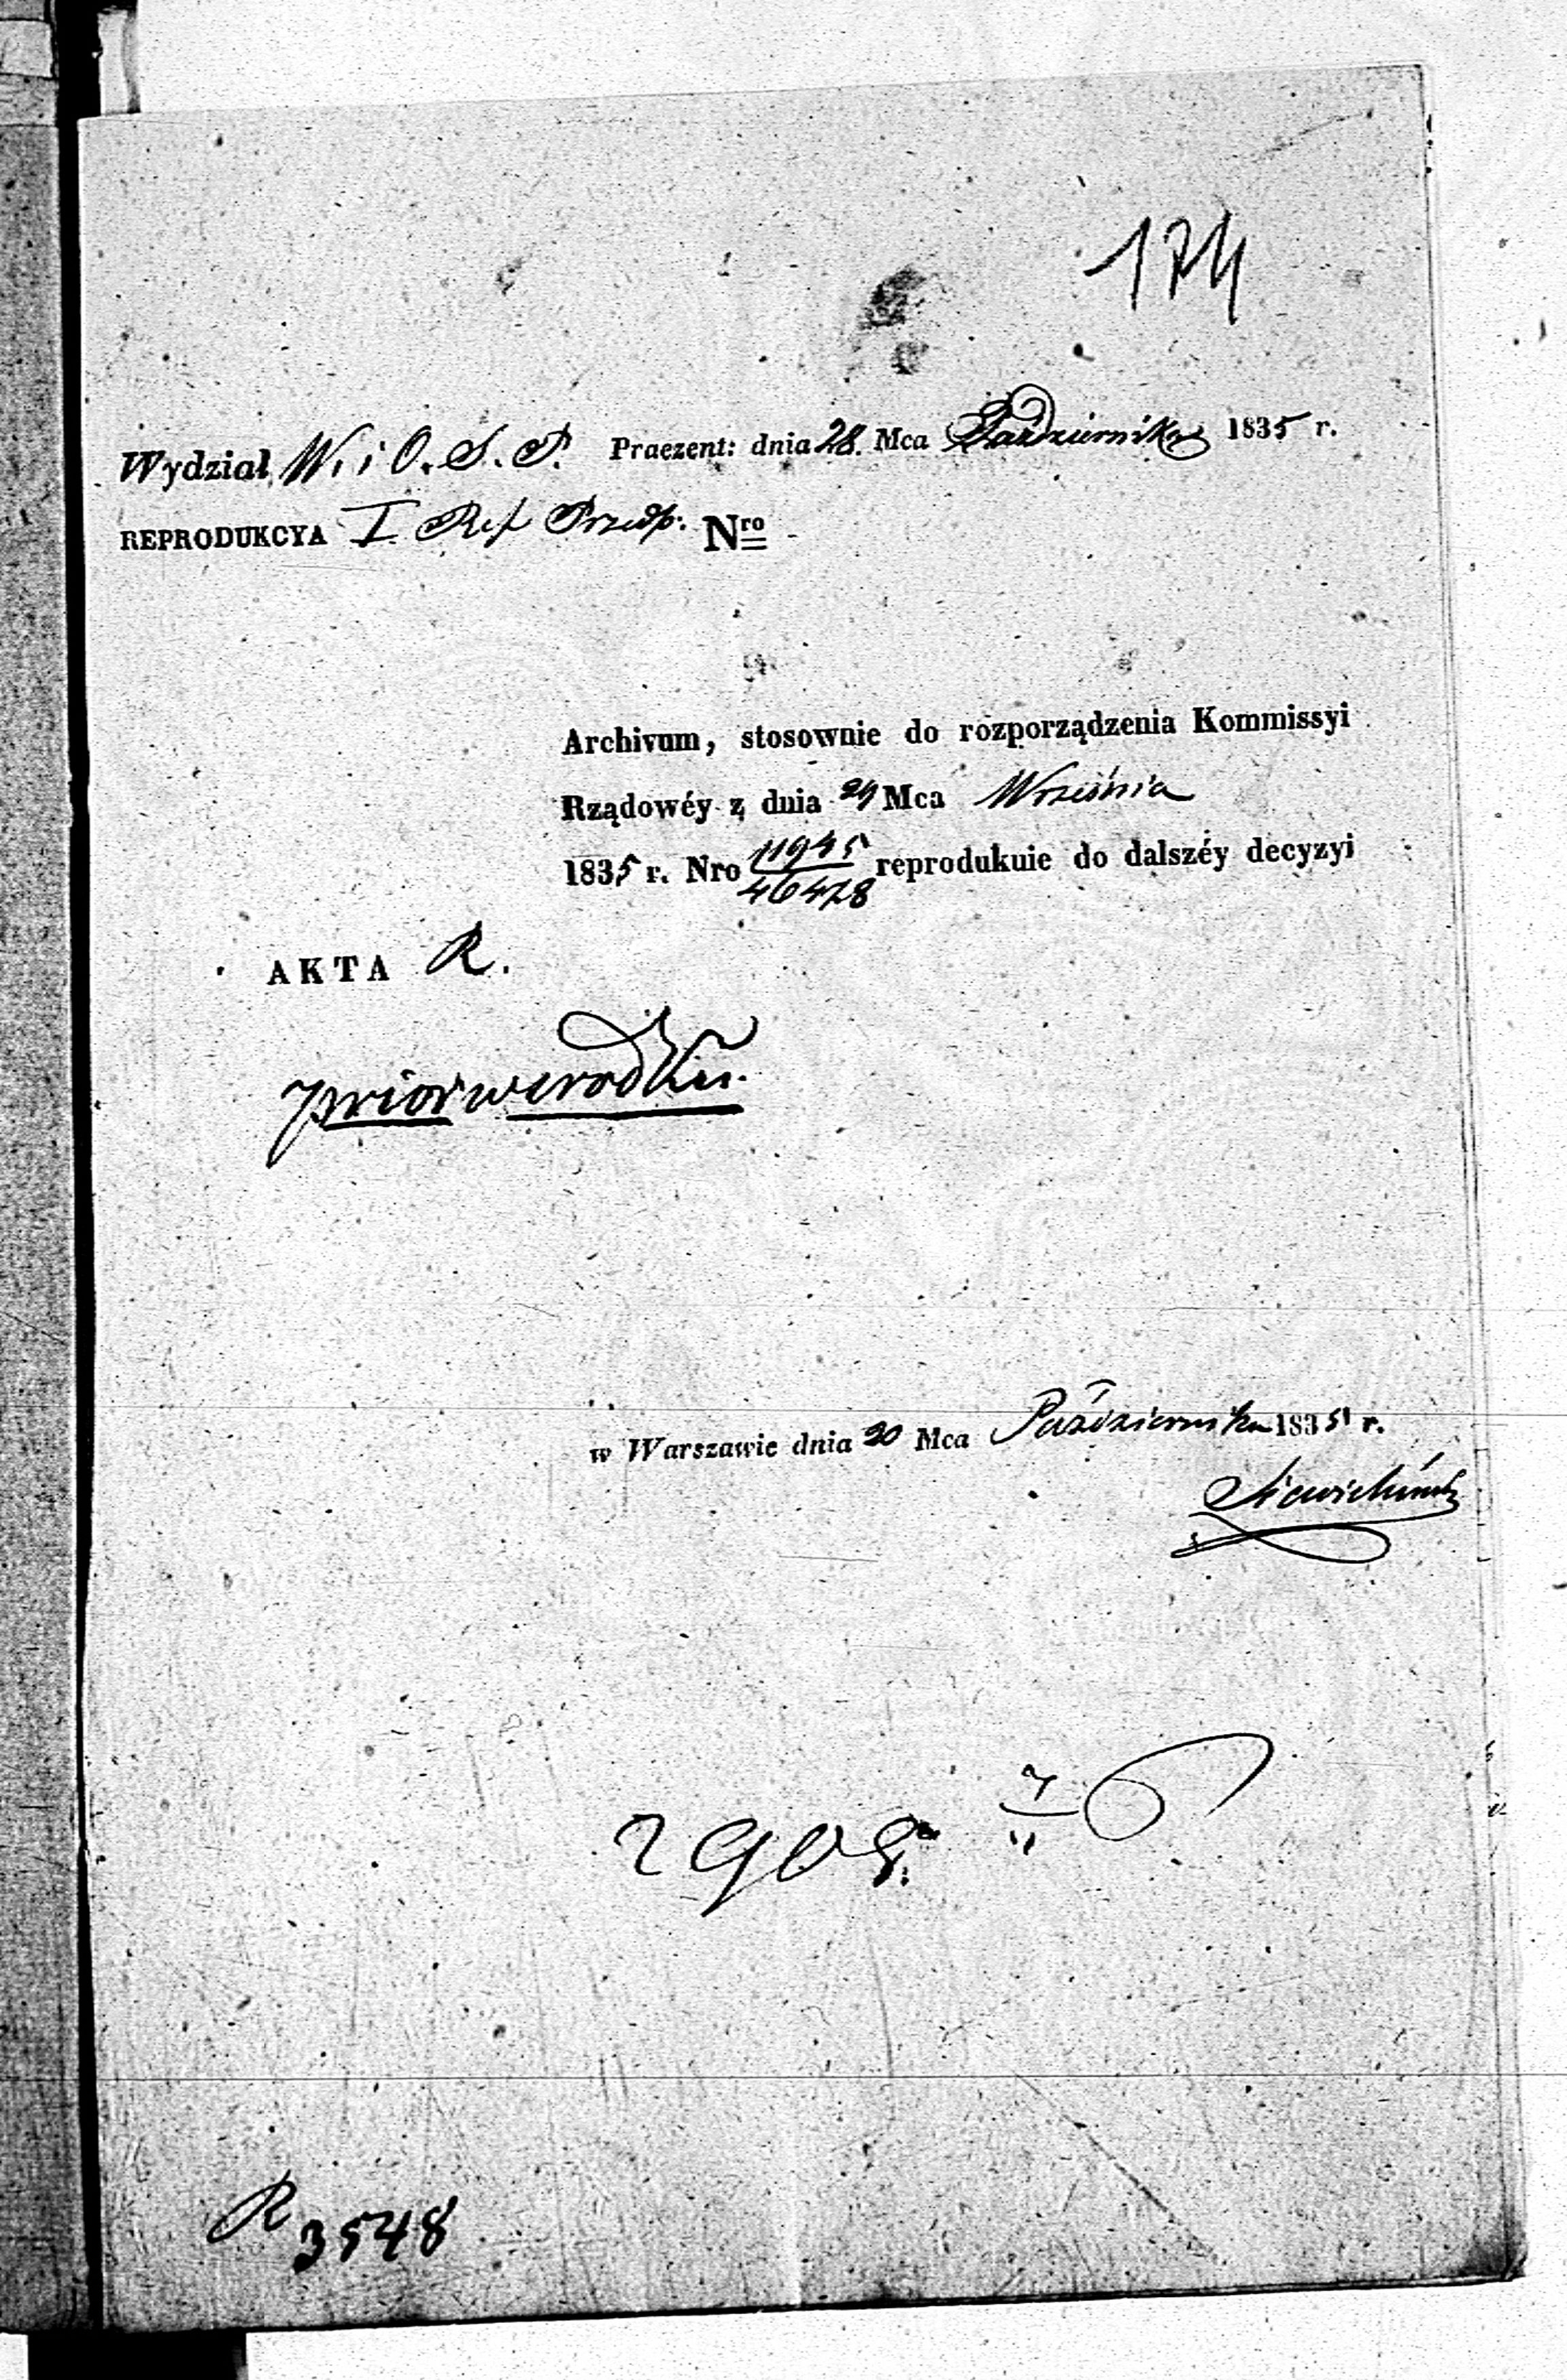 174
Wydział W. i O. S. P. Praezent: dnia 28. Mca Października 1835 r.
REPRODUKCYA I Ref Przedp: Nro
Archivum, stosownie do rozporządzenia Kommissyi
Rządowéy z dnia 24 Mca Września
1835 r. Nro 11945/46428 reprodukuie do dalszéy decyzyi
AKTA R.
prior w srodku.
w Warszawie dnia 20 Mca Października 1835 r.
2908.
7/11
R 3548